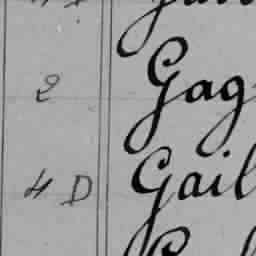 2 Gag
4 D Gail